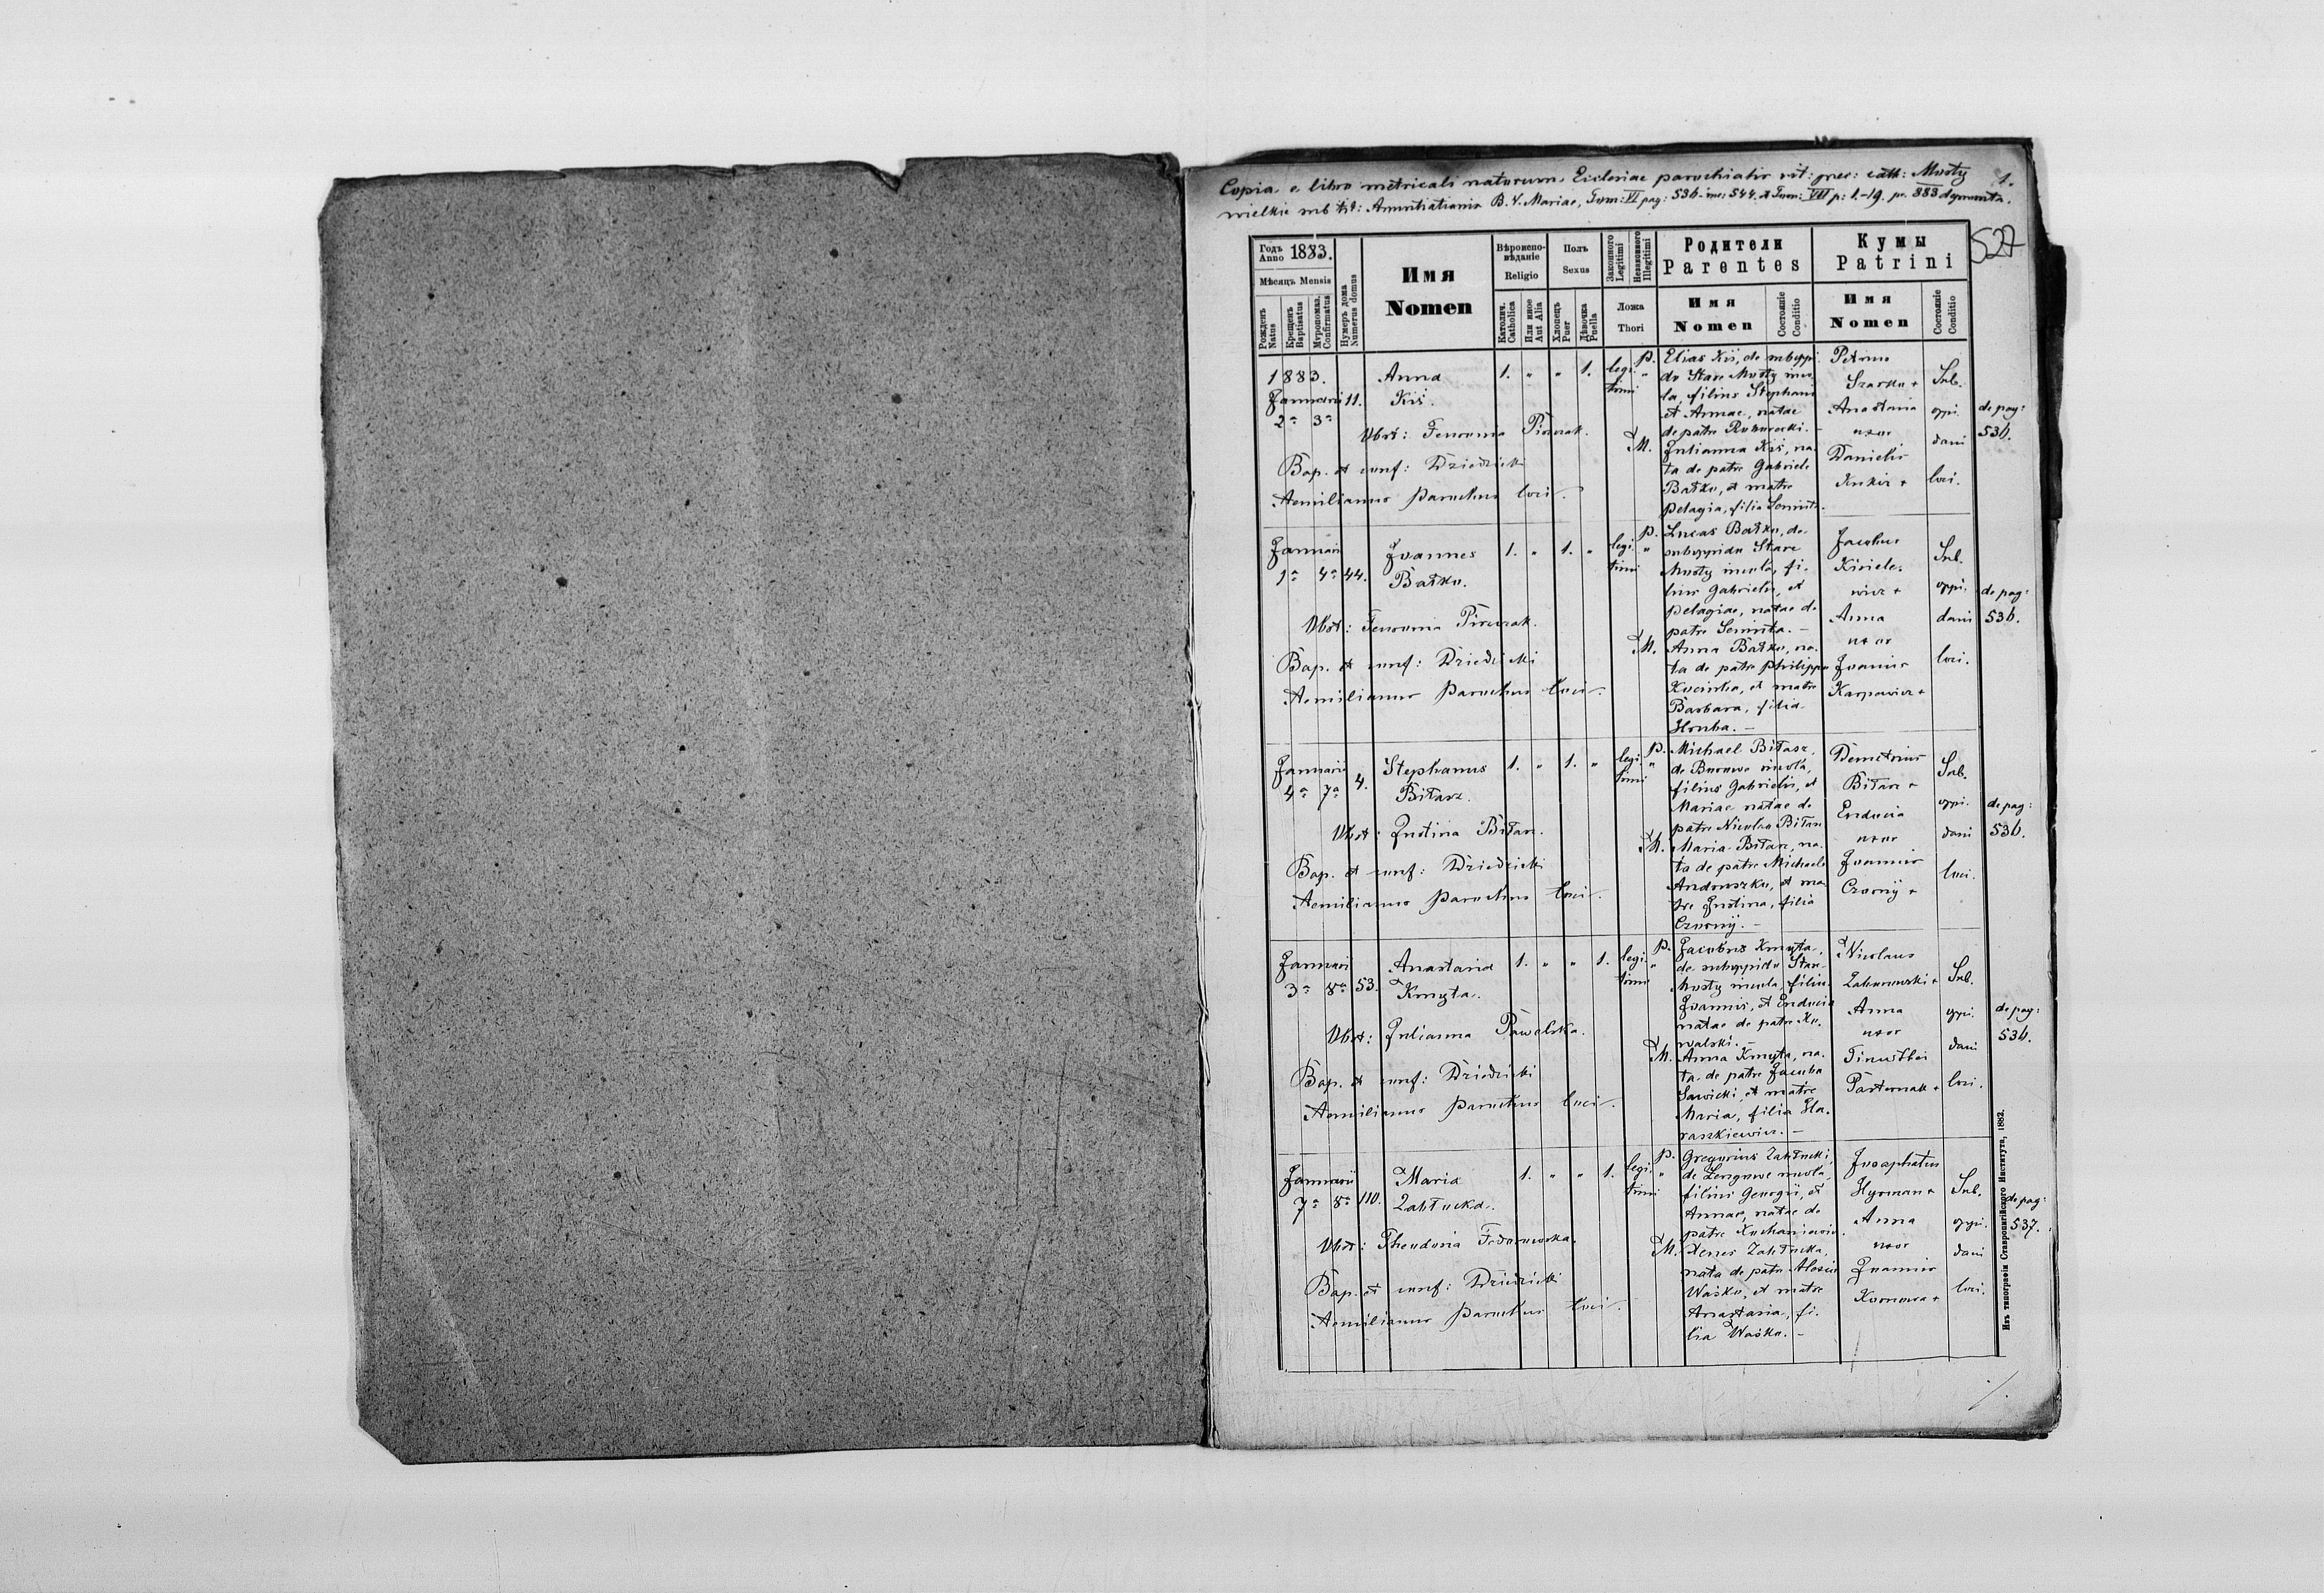 Copia e libro metricali natorum Ecclesiae parochialis rit: grec: cath: Mosty 1.
wielkie sub tit: Annuntiationis B. V. Mariae, Tom: VI pag: 536 544. et Tom: VII p: 1.-19. pr. 883
527
Годъ Anno 1883.
Мѣсяцъ Mensis
Рожденъ Natus
Крещенъ Baptisatus
Мѵропомаз. Confirmatus
Нумеръ дома Numerus domus
Имя
Nomen
Вѣроиспо-
вѣданіе
Religio
Католич. Catholica
Или иное Aut Alia
Полъ
Sexus
Хлопецъ Puer
Дѣвочка Puella
Законного Legitimi
Незаконного Illegitimi
Ложа
Thori
Родители
Parentes
Имя
Nomen
Состояніе Conditio
Кумы
Patrini
Имя
Nomen
Состояніе Conditio
1883.
Januarii 11.
2a 3a
Anna
Kiś.
1. " " 1.
legi-
timi
Obst: Fenronia Pirczak.
Bap. et conf: Dziedzicki
Aemilianus Parochus loci.
P. Elias Kiś, de suboppi-
do Stare Mosty inco-
la, filius Stephani
et Annae, natae
de patre
M. Julianna Kiś, na-
ta de patre Gabriele
Bałko, et matre
Pelagia, filia
Petrus
Szarko +
Anastasia
uxor
Danielis
Kukiz +
Sub.
oppi.
dani
loci.
de pag:
536.
Januarii
1a 4a 44.
Joannes
Bałko.
1. " 1. "
legi-
timi
Obst: Fenronia Pirczak.
Bap. et conf: Dziedzicki
Aemilianus Parochus loci.
P. Lucas Bałko, de
suboppido Stare
Mosty incola, fi-
lius Gabrielis, et
Pelagiae, natae de
patre
M. Anna Bałko, na-
ta de patre Philippo
et matre
Barbara, filia
Hruba. —
Jacobus
Kisiele-
wicz +
Anna
uxor
Joannis
Karpowicz +
Sub.
oppi.
dani
loci.
de pag:
536.
Januarii
4a 7a 4.
Stephanus
Biłasz.
1. " 1. "
legi-
timi
Obst: Justina Biłasz.
Bap. et conf: Dziedzicki
Aemilianus Parochus loci.
P. Michael Biłasz,
de Borowe incola,
filius Gabrielis, et
Mariae natae de
patre Nicolao Biłasz
M. Maria Biłasz, na-
ta de patre Michaele
Andruszko, et ma-
tre Justina, filia
Czornyj. —
Demetrius
Biłasz +
Eudocia
uxor
Joannis
Czornyj +
Sub.
oppi.
dani
loci.
de pag:
536.
Januarii
3a 8a 53.
Anastasia
Kmyta.
1. " " 1.
legi-
timi
Obst: Julianna Pawelska.
Bap. et conf: Dziedzicki
Aemilianus Parochus loci.
P. Jacobus Kmyta,
de suboppido Stare
Mosty incola, filius
Joannis, et Eudocia
natae de patre Ko-
walski. —
M. Anna Kmyta, na-
ta de patre Jacobo
Sawicki, et matre
Maria, filia Ha-
raszkiewicz. —
Nicolaus
+
Anna
uxor
Timothei
Pasternak +
Sub.
oppi.
dani
loci.
de pag:
536.
Januarii
7a 8a 110.
Maria
Zabłocka.
1. " " 1.
legi-
timi
Obst: Theodosia Fedorowska.
Bap. et conf: Dziedzicki
Aemilianus Parochus loci.
P. Gregorius Zabłocki,
de incola,
filius Georgii, et
Annae, natae de
patre
M. Xenes Zabłocka,
nata de patre Alexio
Waśko, et matre
Anastasia, fi-
lia Waśko. —
Josaphatus
Hyrman +
Anna
uxor
Joannis
+
Sub.
oppi.
dani
loci.
de pag:
537.
Изъ типографіи Ставропигійского Института, 1882.